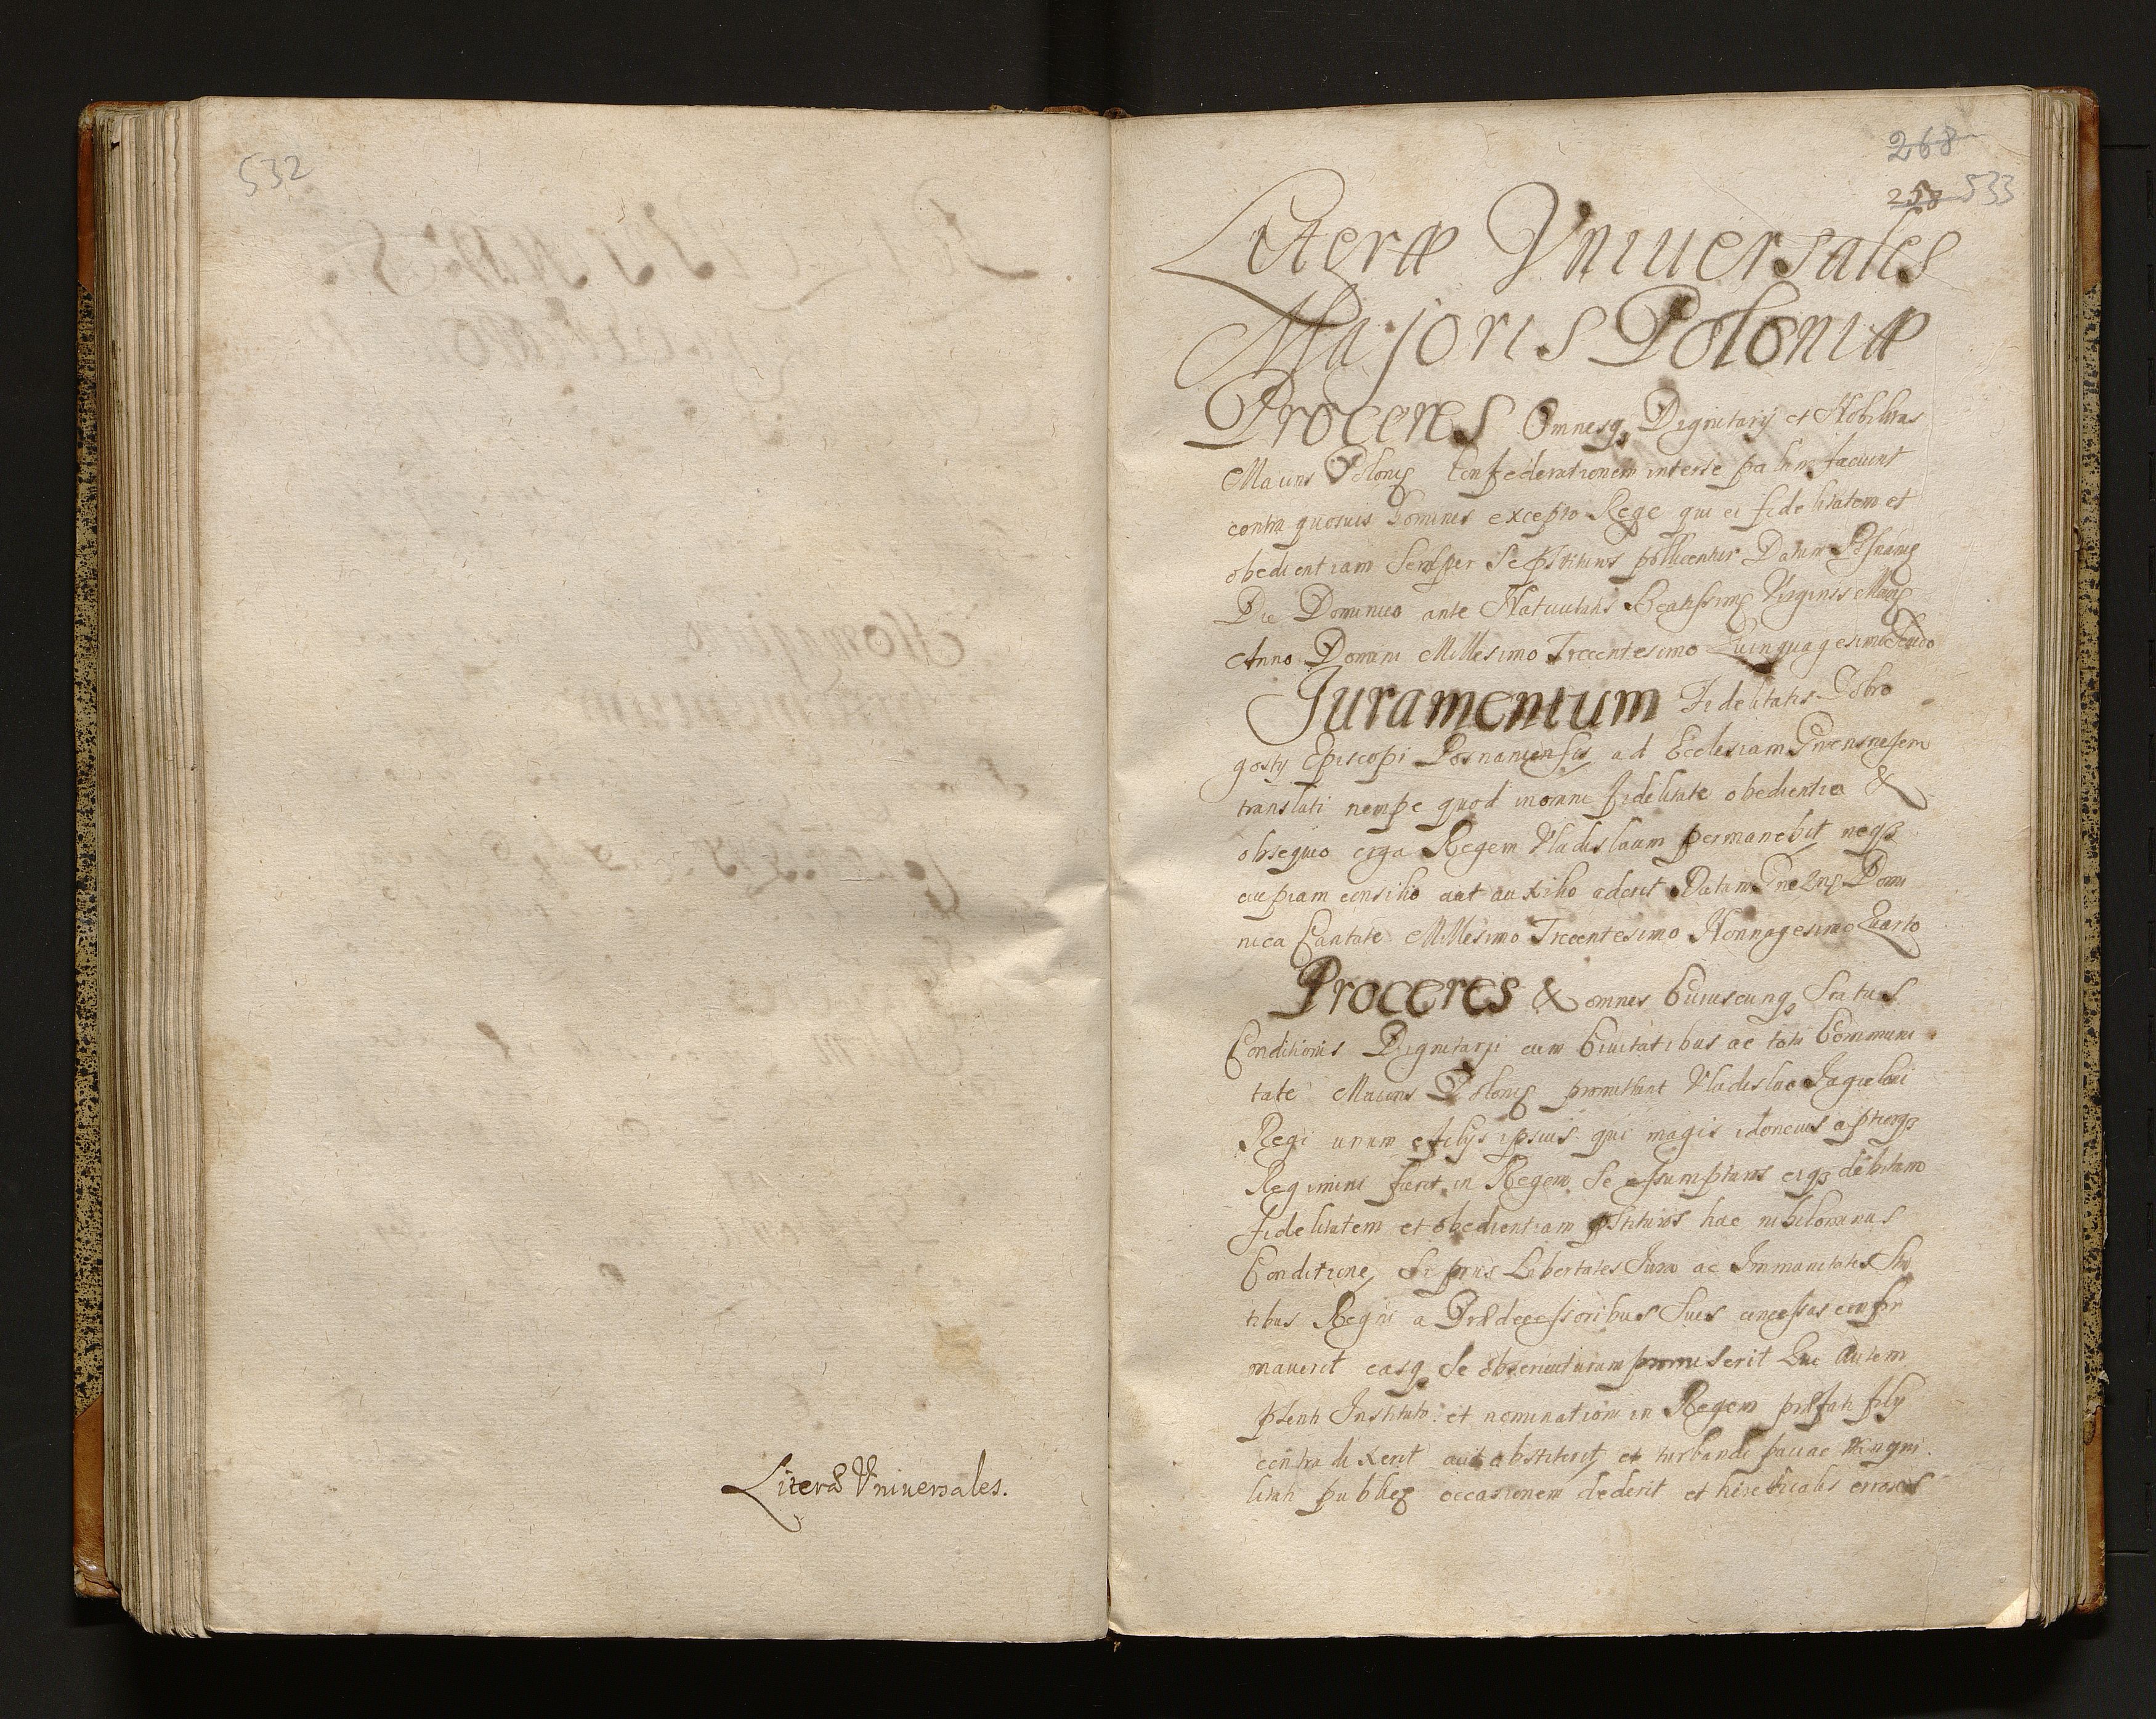 532
Literæ Vniuersales.
268
258 533
Literæ Vniuersales
Majoris Poloniæ
Proceres Omnesq; Dignitarij et Nobilitas
Maioris Polonię Confederationem inter se palam faciunt
contra quosuis homines excepto Rege qui ei fidelitatem et
obedientiam Semper Se pstituros pollicentur Datum Posnanię
Die Dominico ante Natiuitatis Beatissimę Virginis Marię
Anno Domini Millesimo Trecentesimo Quinquagesimo Scdo
Juramentum Fidelitatis Dobro
gostij Episcopi Posnaniensis ad Ecclesiam Gnensnesem
translati nempe quod in omni fidelitate obedientia &
obsequio erga Regem Vladislaum permanebit neqз
cuipiam consilio aut auxilio aderit Datum Gneznę Domi
nica Cantate Millesimo Trecentesimo Nonnagesimo Quarto
Proceres & omnes Cuiuscunq; Status
Conditionis Dignitarii cum Ciuitatibus ac toti Communi
tate Maioris Polonię promittunt Vladislao Jagieloni
Regi unum e filijs ipsius qui magis idoneus aptiorqз
Regimini fuerit in Regem Se assumpturos eiqз debitam
fidelitatem et obedientiam pstituros hac nihilominus
Conditione, Si prius Libertates Jura ac Immunitates Sta
tibus Regni a Prædecessoribus Suis concessas confir
mauerit easq; Se obseruaturum promiserit Qui autem
psenti Instituto et nominationi in Regem præfati filij
contradixerit aut obstiterit et turbandi paciac
litati publicę occasionem dederit et hæreticalis errores